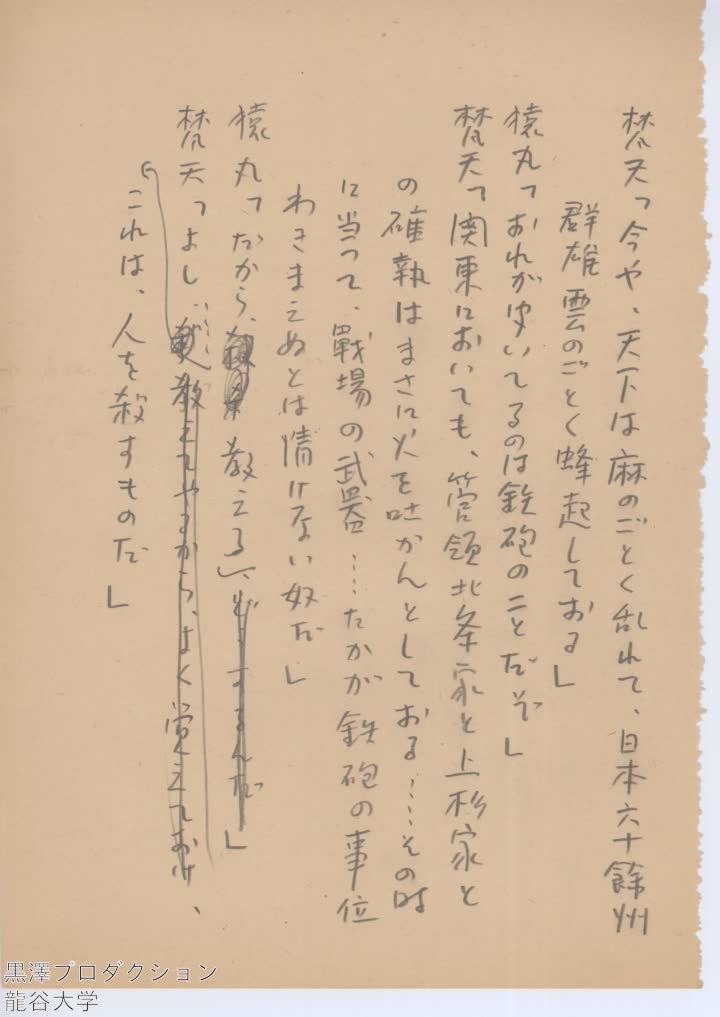 梵天「今や、天下は麻のごとく乱れて、日本六十餘州
群雄雲のごとく蜂起しておる」
猿丸「おれが史いてるのは鉄砲のことだぞ」
梵天「関東においても、管領北条家と上杉家と
の確執はまさに火を吐かんとしておる……その時
に当って、戰場の武器……たかが鉄砲の事位
わきまえぬとは情けない奴だ」
猿丸「だから、教える」、どうするんだ」
梵天「よし……教えてやるから、よく覚えておけ、
「これは、人を殺すものだ」
黒澤プロダクション
龍谷大学